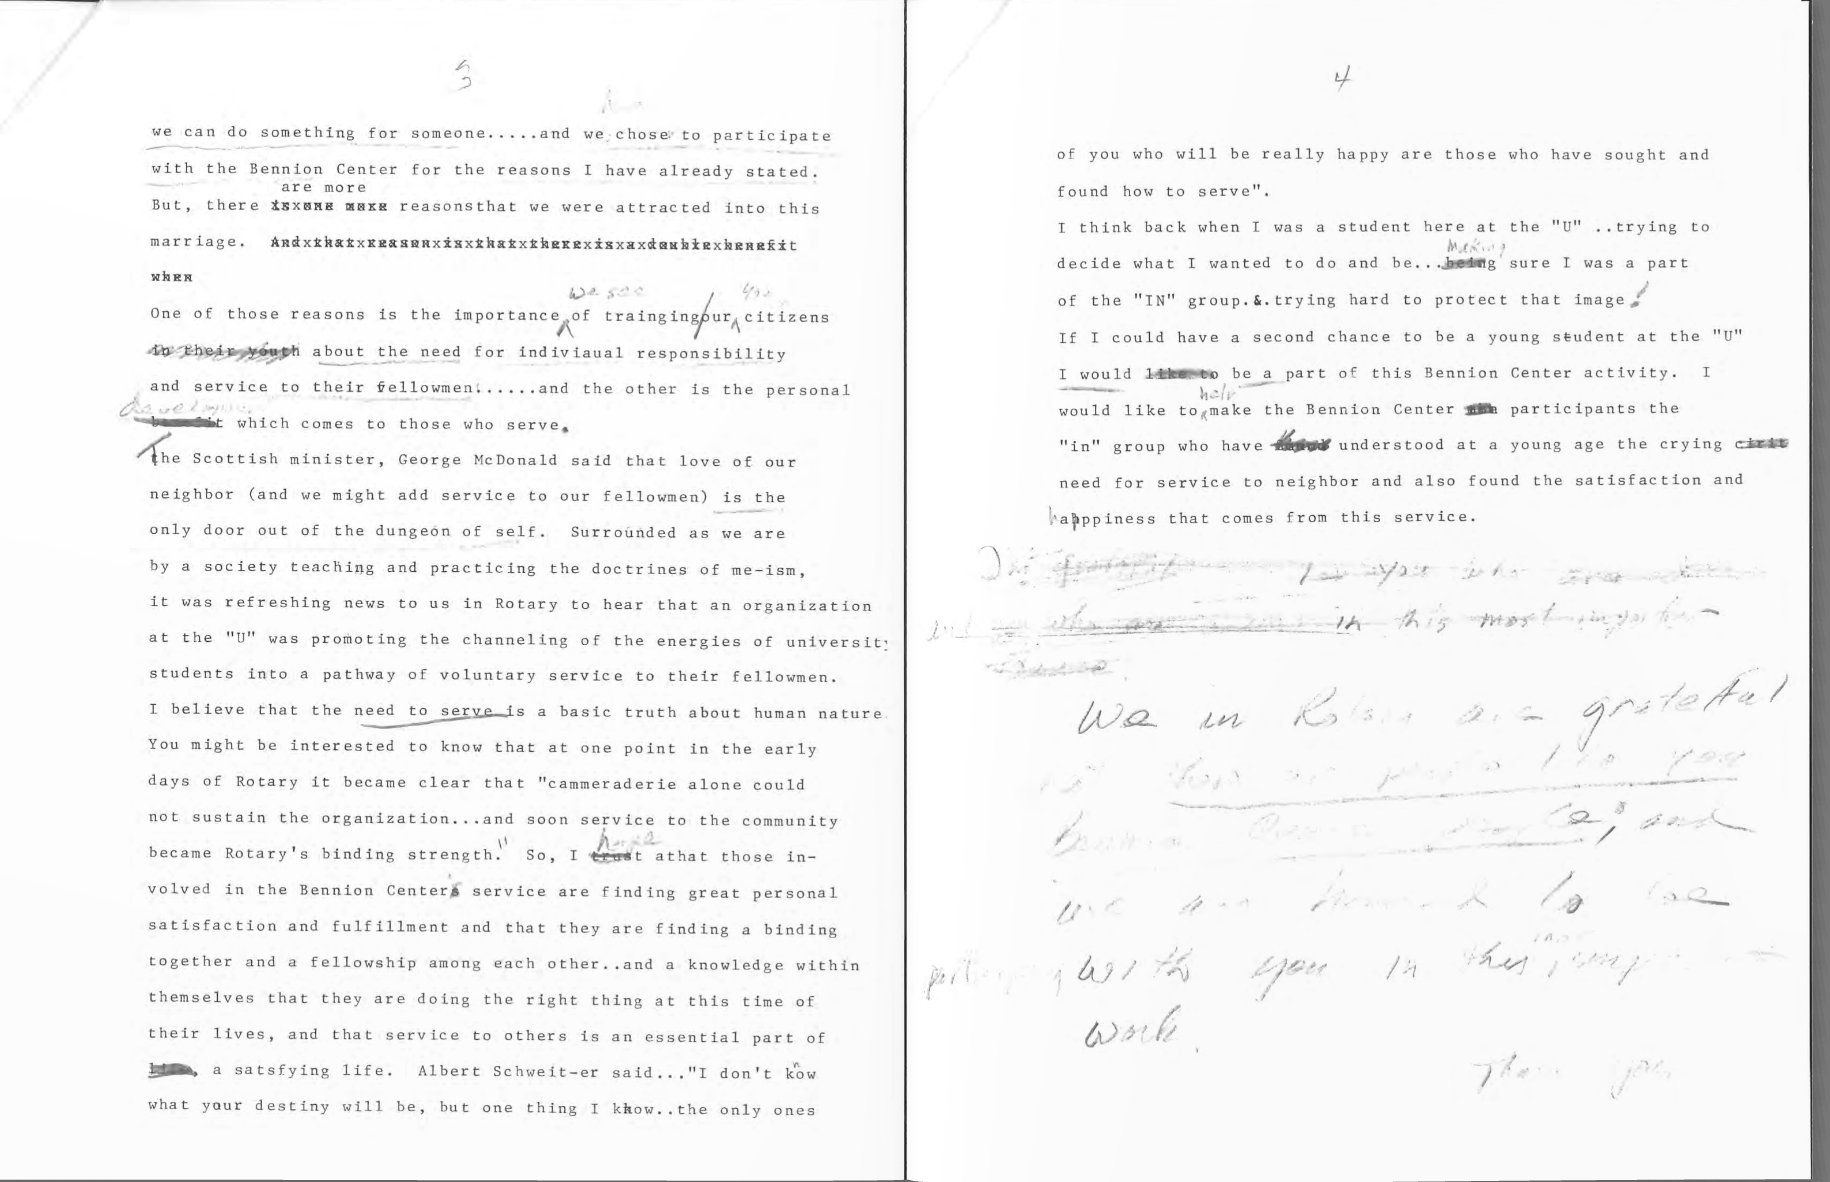 3
we can do something for someone.....and we chose to participate
with the Bennion Center for the reasons I have already stated.
are more
But, there reasonsthat we were attracted into this
marriage. Andxthatxreasonxisxthatxtherexisxaxdoublexbenefit
when
we see
One of those reasons is the importance of trainging/our citizens
in their youth about the need for indiviaual responsibility
and service to their fellowmen.......and the other is the personal
which comes to those who serve.
The Scottish minister, George McDonald said that love of our
neighbor (and we might add service to our fellowmen) is the
only door out of the dungeon of self. Surrounded as we are
by a society teaching and practicing the doctrines of me-ism,
it was refreshing news to us in Rotary to hear that an organization
at the "U" was promoting the channeling of the energies of universit
students into a pathway of voluntary service to their fellowmen.
I believe that the need to serve is a basic truth about human nature.
You might be interested to know that at one point in the early
days of Rotary it became clear that "cammeraderie alone could
not sustain the organization...and soon service to the community
hope
became Rotary's binding strength." So, I trust athat those in-
volved in the Bennion Center's service are finding great personal
satisfaction and fulfillment and that they are finding a binding
together and a fellowship among each other..and a knowledge within
themselves that they are doing the right thing at this time of
their lives, and that service to others is an essential part of
a satsfying life. Albert Schweit-er said..."I don't know
what your destiny will be, but one thing I know..the only ones
4
of you who will be really happy are those who have sought and
found how to serve".
I think back when I was a student here at the "U" ..trying to
making
decide what I wanted to do and be...being sure I was a part
of the "IN" group.&.trying hard to protect that image!
If I could have a second chance to be a young student at the "U"
I would like to be a part of this Bennion Center activity. I
help
would like to make the Bennion Center participants the
"in" group who have understood at a young age the crying
need for service to neighbor and also found the satisfaction and
happiness that comes from this service.
to you who are
in this most
We in Rotary are grateful
you
and
we are to be
with you in this
work.
Thank you